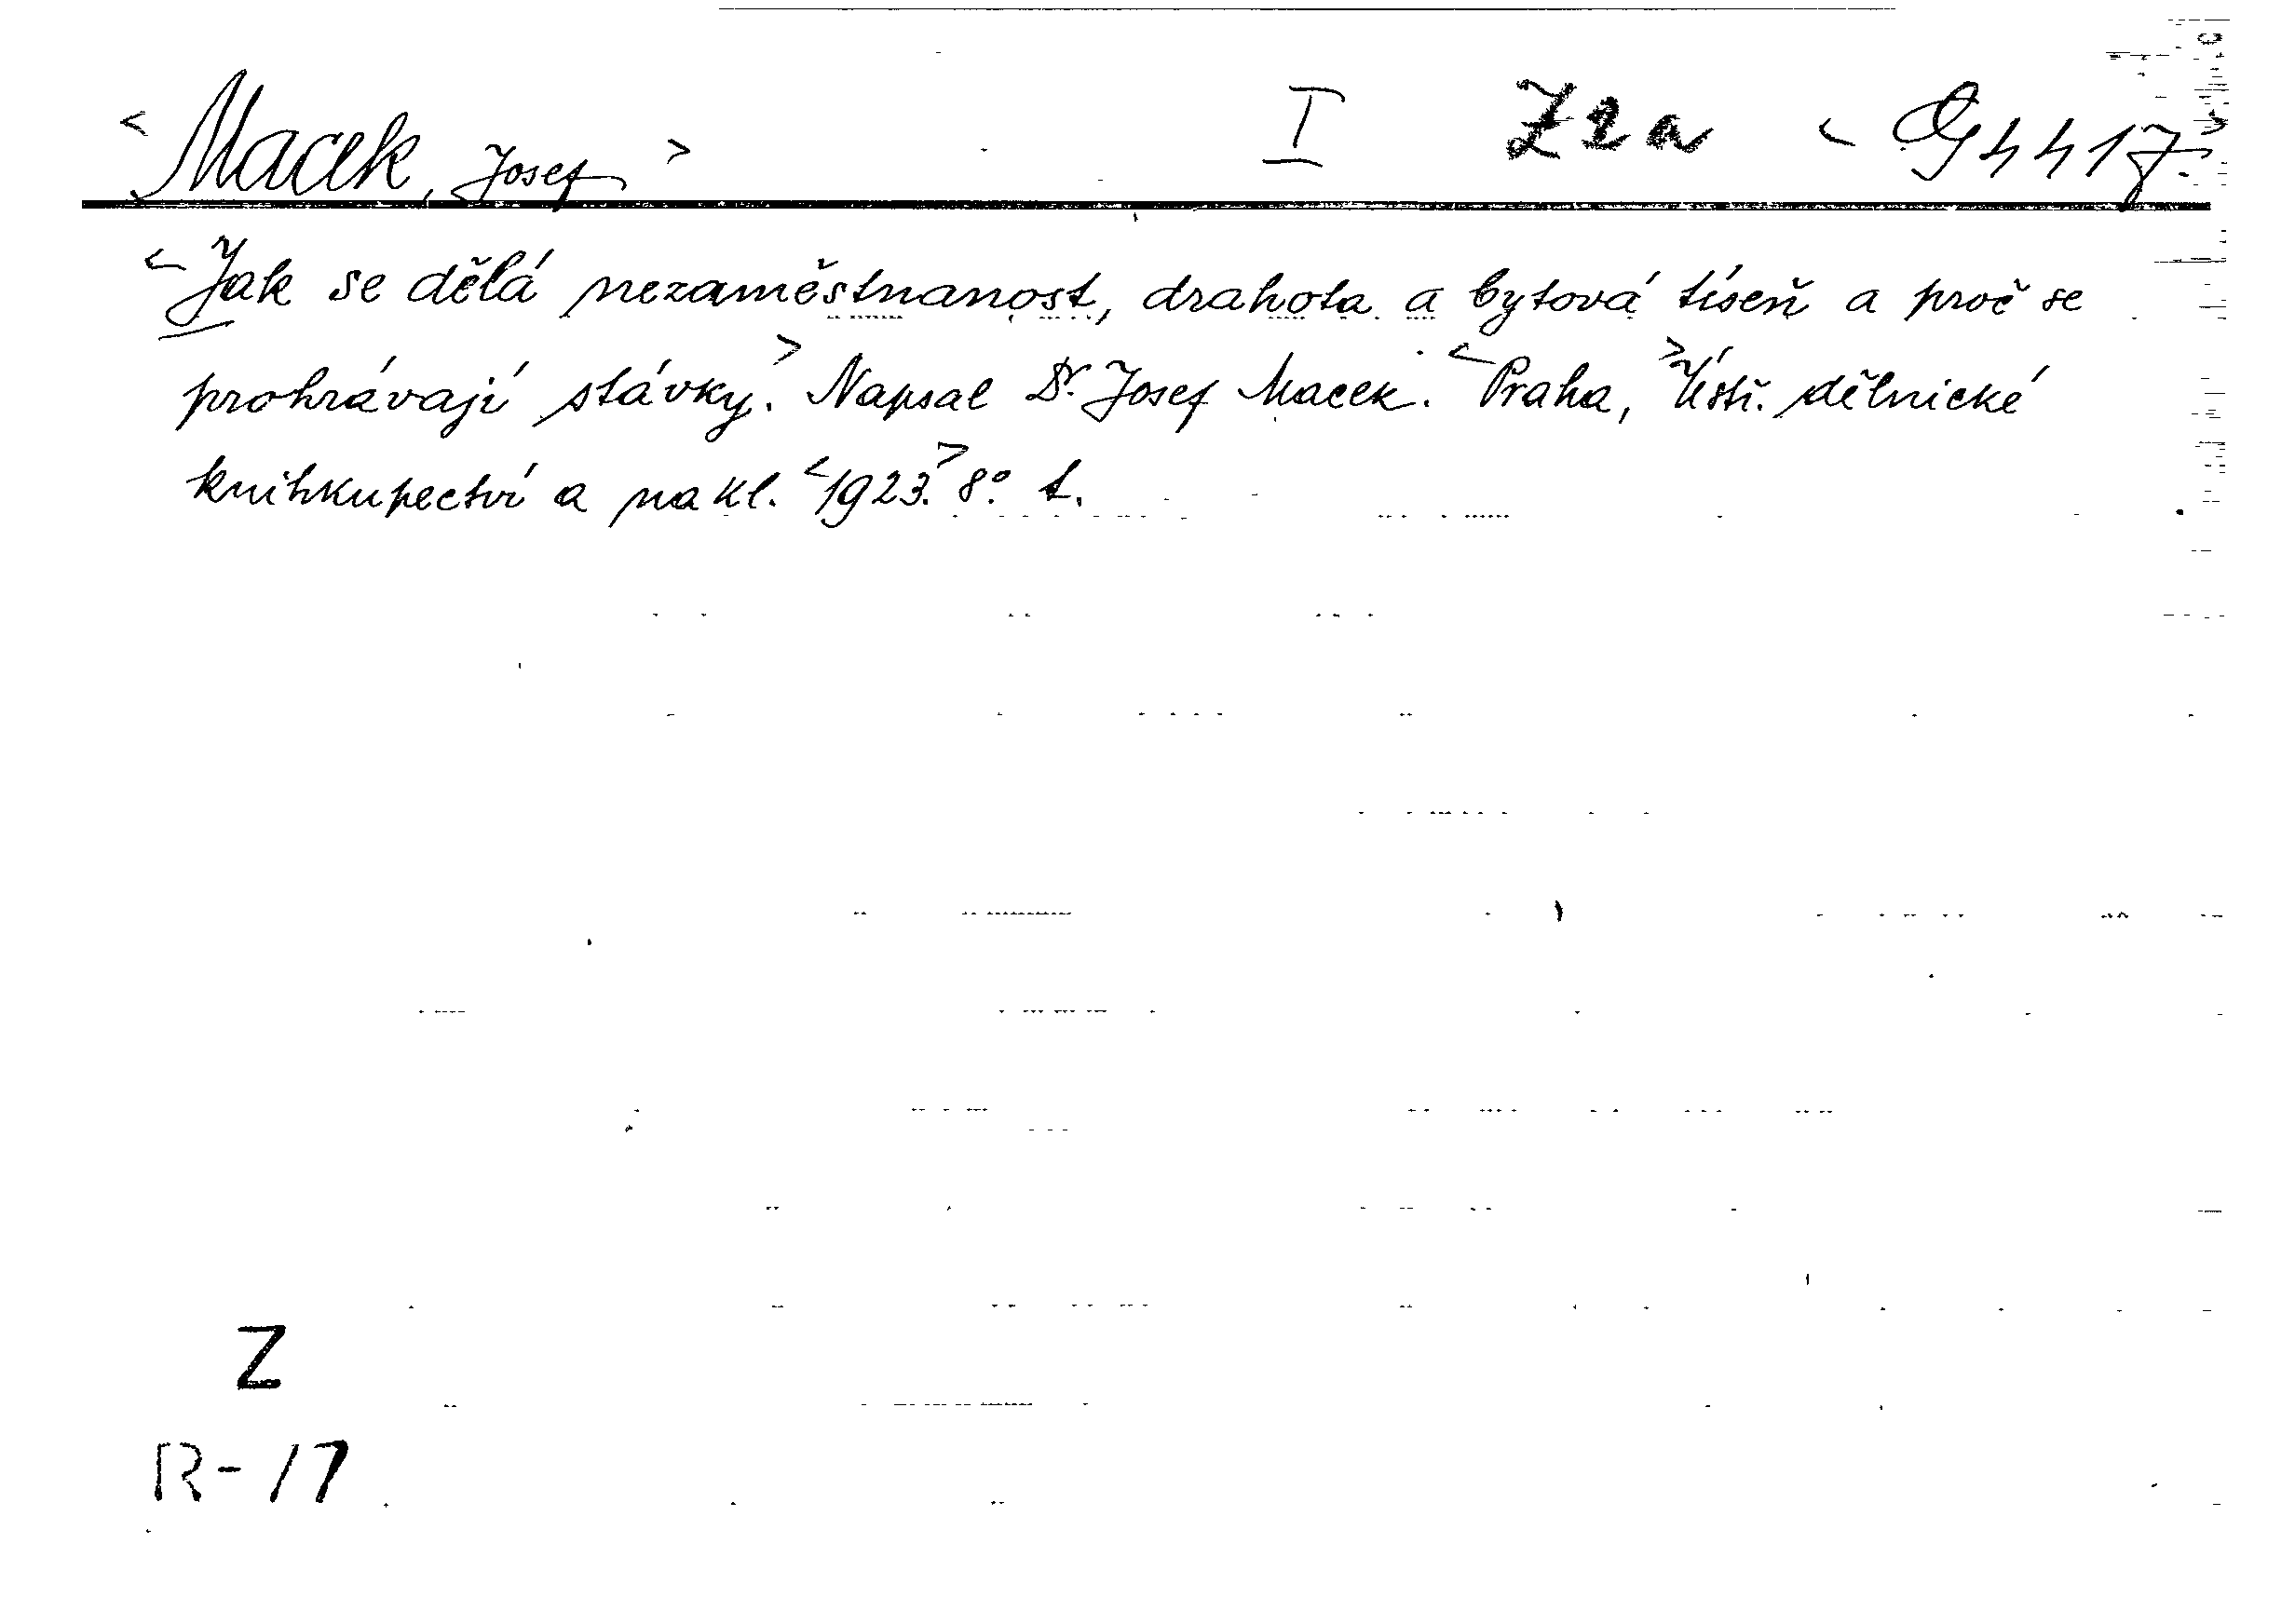 < Macek, Josef > I Z2a < G 4417. >
< Jak se dělá nezaměstnanost, drahota a bytová tíseň a proč se
prohrávají stávky. > Napsal Dr. Josef Macek. < Praha, > Ústř. dělnické
knihkupectví a nakl. < 1923. > 8° t.
Z
R-17